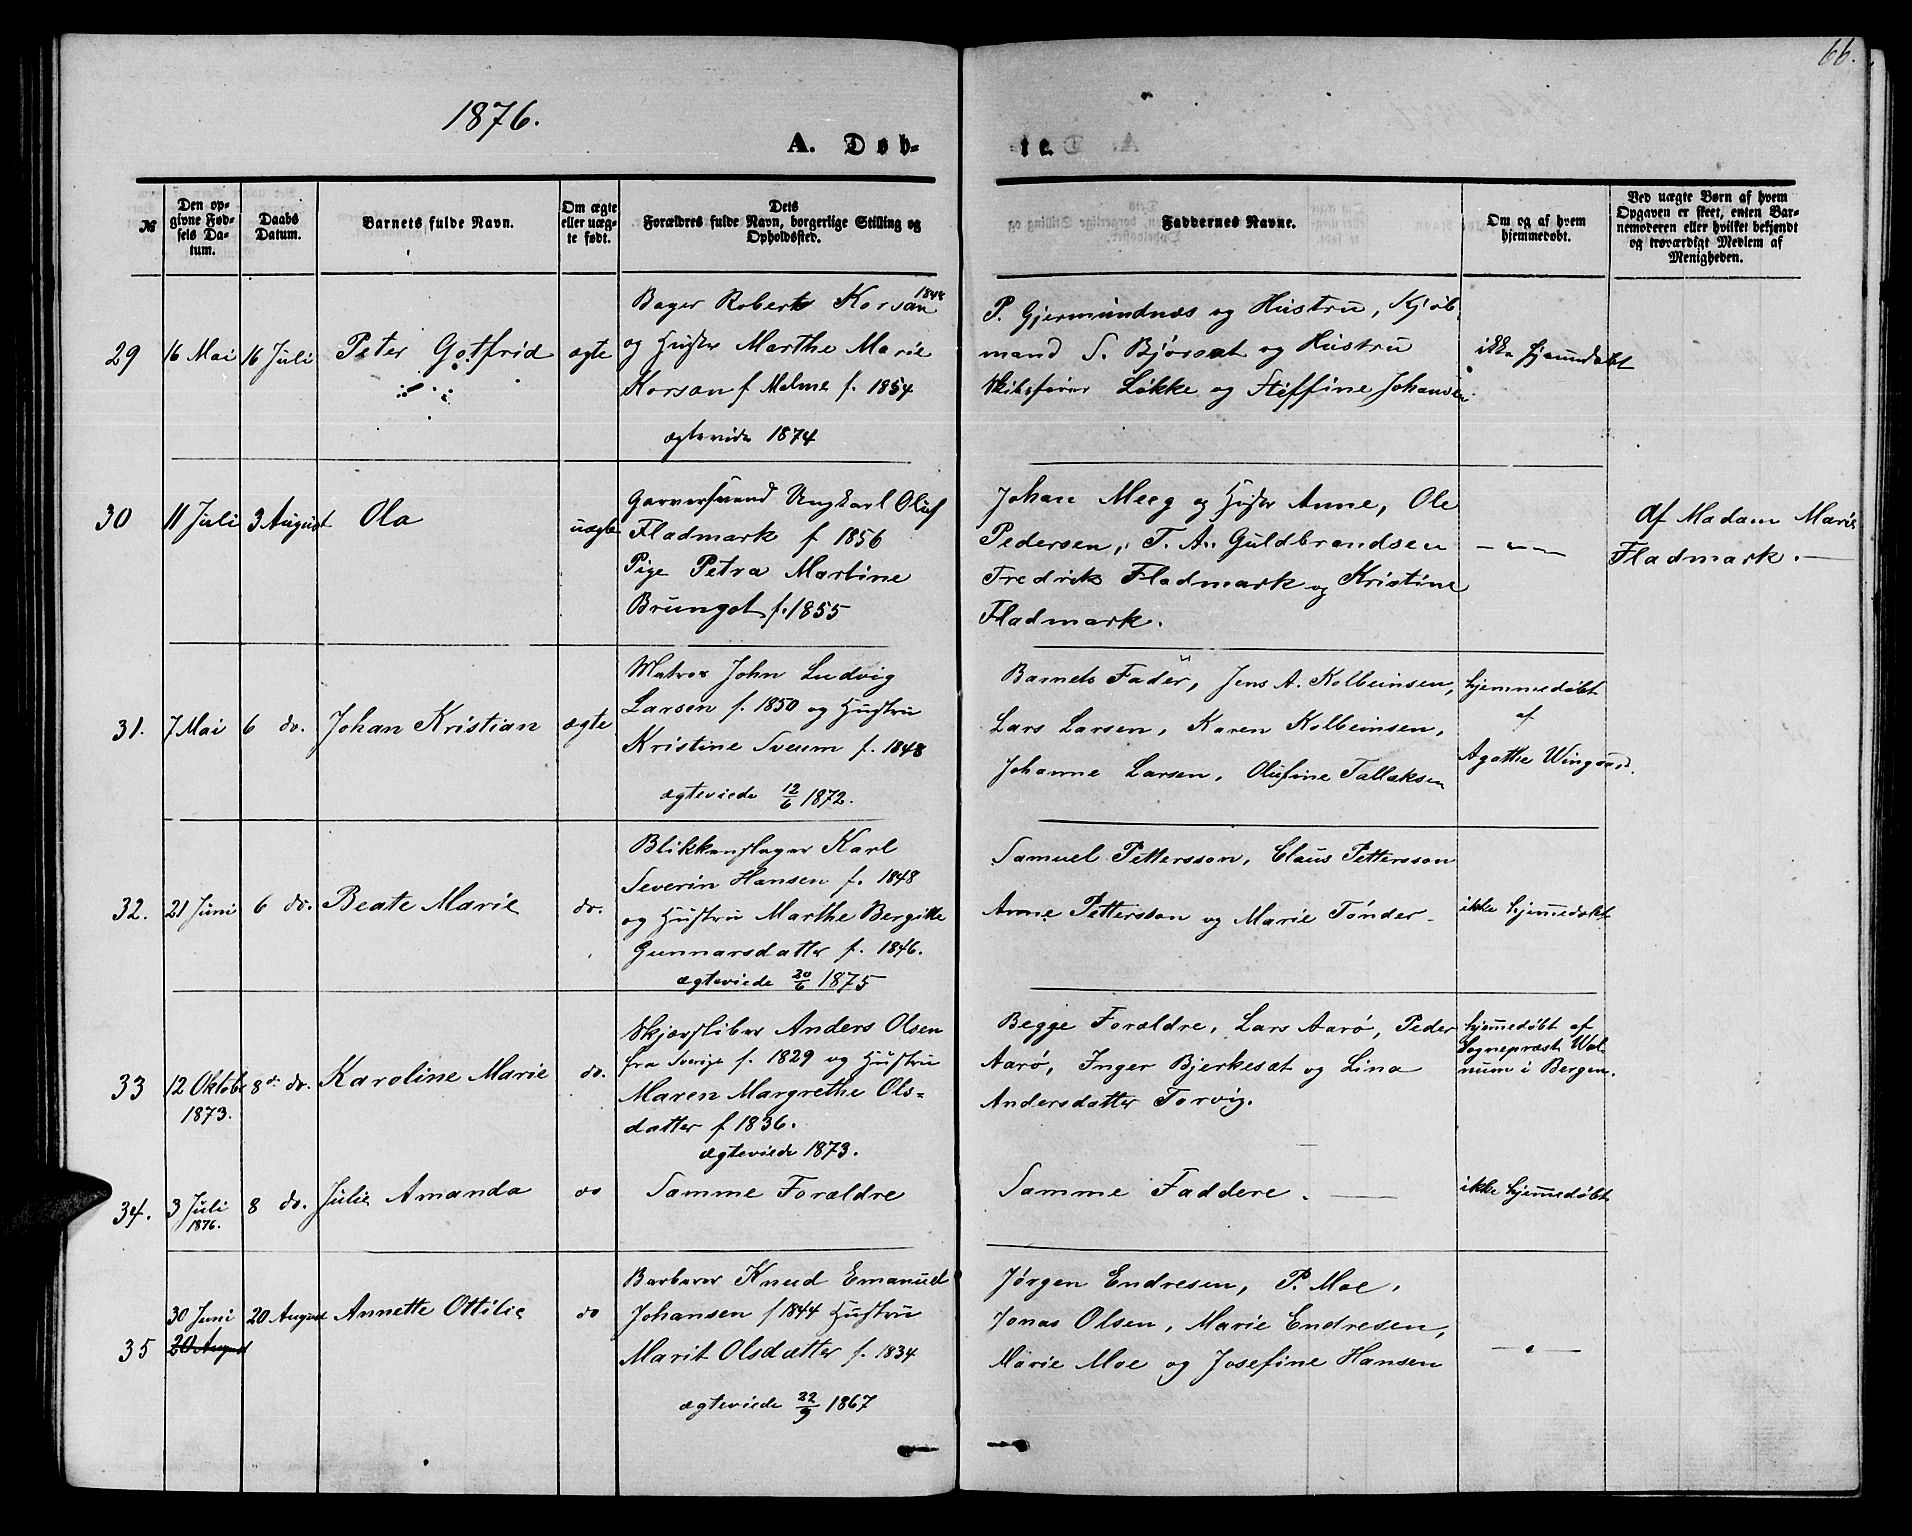 66.
1876.
A. Døb-
te.
№
Den op-
givne Fød-
sels Da-
tum.
Daabs
Datum.
Barnets fulde Navn.
Om ægte
eller uæg-
te født.
Dets
Forældres fulde Navn, borgerlige Stilling og
Opholdssted.
Faddernes Navne.
Om og af hvem
hjemmedøbt.
Ved uægte Børn af hvem
Opgaven er skeet, enten Bar-
nemoderen eller hvilket bekjendt
og troværdigt Medlem af
Menigheden.
29
16 Mai
16 Juli
Peter Gotfrid
ægte
Bager Robert Korsan 1848
og Hustr Marthe Marie
Korsan f Malme f. 1854
ægteviede 1874
P. Gjermundnæs og Hustru, Kjøb
mand S. Bjørsat og Hustru
Skibsfører Løkke og Steffine Johansen
ikke hjemmedøbt
30
11 Juli
3 August
Ola
uægte
Garversvend Ungkarl Oluf
Fladmark f 1856
Pige Petra Martine
Brungot f. 1855
Johan Meeg og Hustr Anne, Ole
Pedersen, T. A. Guldbrandsen
Fredrik Fladmark og Kristine
Fladmark.
— " —
Af Madam Marie
Fladmark. —
31.
7 Mai
6 do.
Johan Kristian
ægte
Matros John Ludvig
Larsen f. 1850 og Hustru
Kristine Sveum f. 1848
ægteviede 12/6 1872.
Barnets Fader, Jens A. Kolbeinsen,
Lars Larsen, Karen Kolbeinsen,
Johanne Larsen, Olufine Tallaksen
hjemmedøbt
af
Agathe Wingaard.
32.
21 Juni
6 do.
Beate Marie
do.
Blikkenslager Karl
Severin Hansen f. 1848
og Hustru Marthe Bergitte
Gunnarsdatter f. 1846.
ægteviede 20/6 1875
Samuel Pettersson, Claus Pettersson
Anne Pettersson og Marie Tønder
ikke hjemmedøbt
33
12 Oktobr
1873.
8de do.
Karoline Marie
do.
Skjærsliber Anders Olsen
fra Sverige f. 1829 og Hustru
Maren Margrethe Ols-
datter f 1836.
ægteviede 1873.
Begge Forældre, Lars Aarø, Peder
Aarø, Inger Bjerkesat og Lina
Andersdatter Torvig.
hjemmedøbt af
Sognepræst Wal-
num i Bergen.
34.
3 Juli
1876.
8 do.
Julie Amanda
do
Samme Forældre
Samme Faddere. —
ikke hjemmedøbt
35
30 Juni
20 August
20 August
Annette Ottilie
do
Barberer Knud Emanuel
Johansen f 1844 Hustru
Marit Olsdatter f. 1834
ægteviede 22/9 1867
Jørgen Endresen, P. Moe,
Jonas Olsen, Marie Endresen,
Marie Moe og Josefine Hansen
— " —